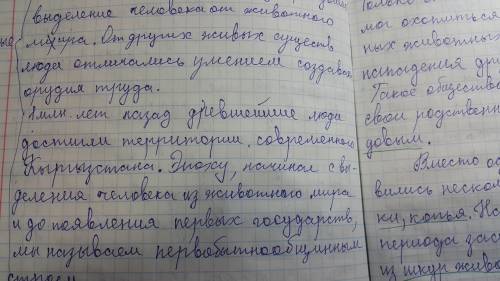 выделение человека от животного
мира. От других живых существ
люди отличались умением создавать
орудия труда.
1 млн. лет назад древнейшие люди
достигли территории современного
Кыргызстана. Эпоху, начиная с вы-
деления человека из животного мира
и до появления первых государств,
мы называем первобытнообщинным
строем.
мог охотиться
ных животных
нападения
Такое общество
свои родствен
довым.
Вместо
вились неско
ки, копья. На
периода
из шкур живо